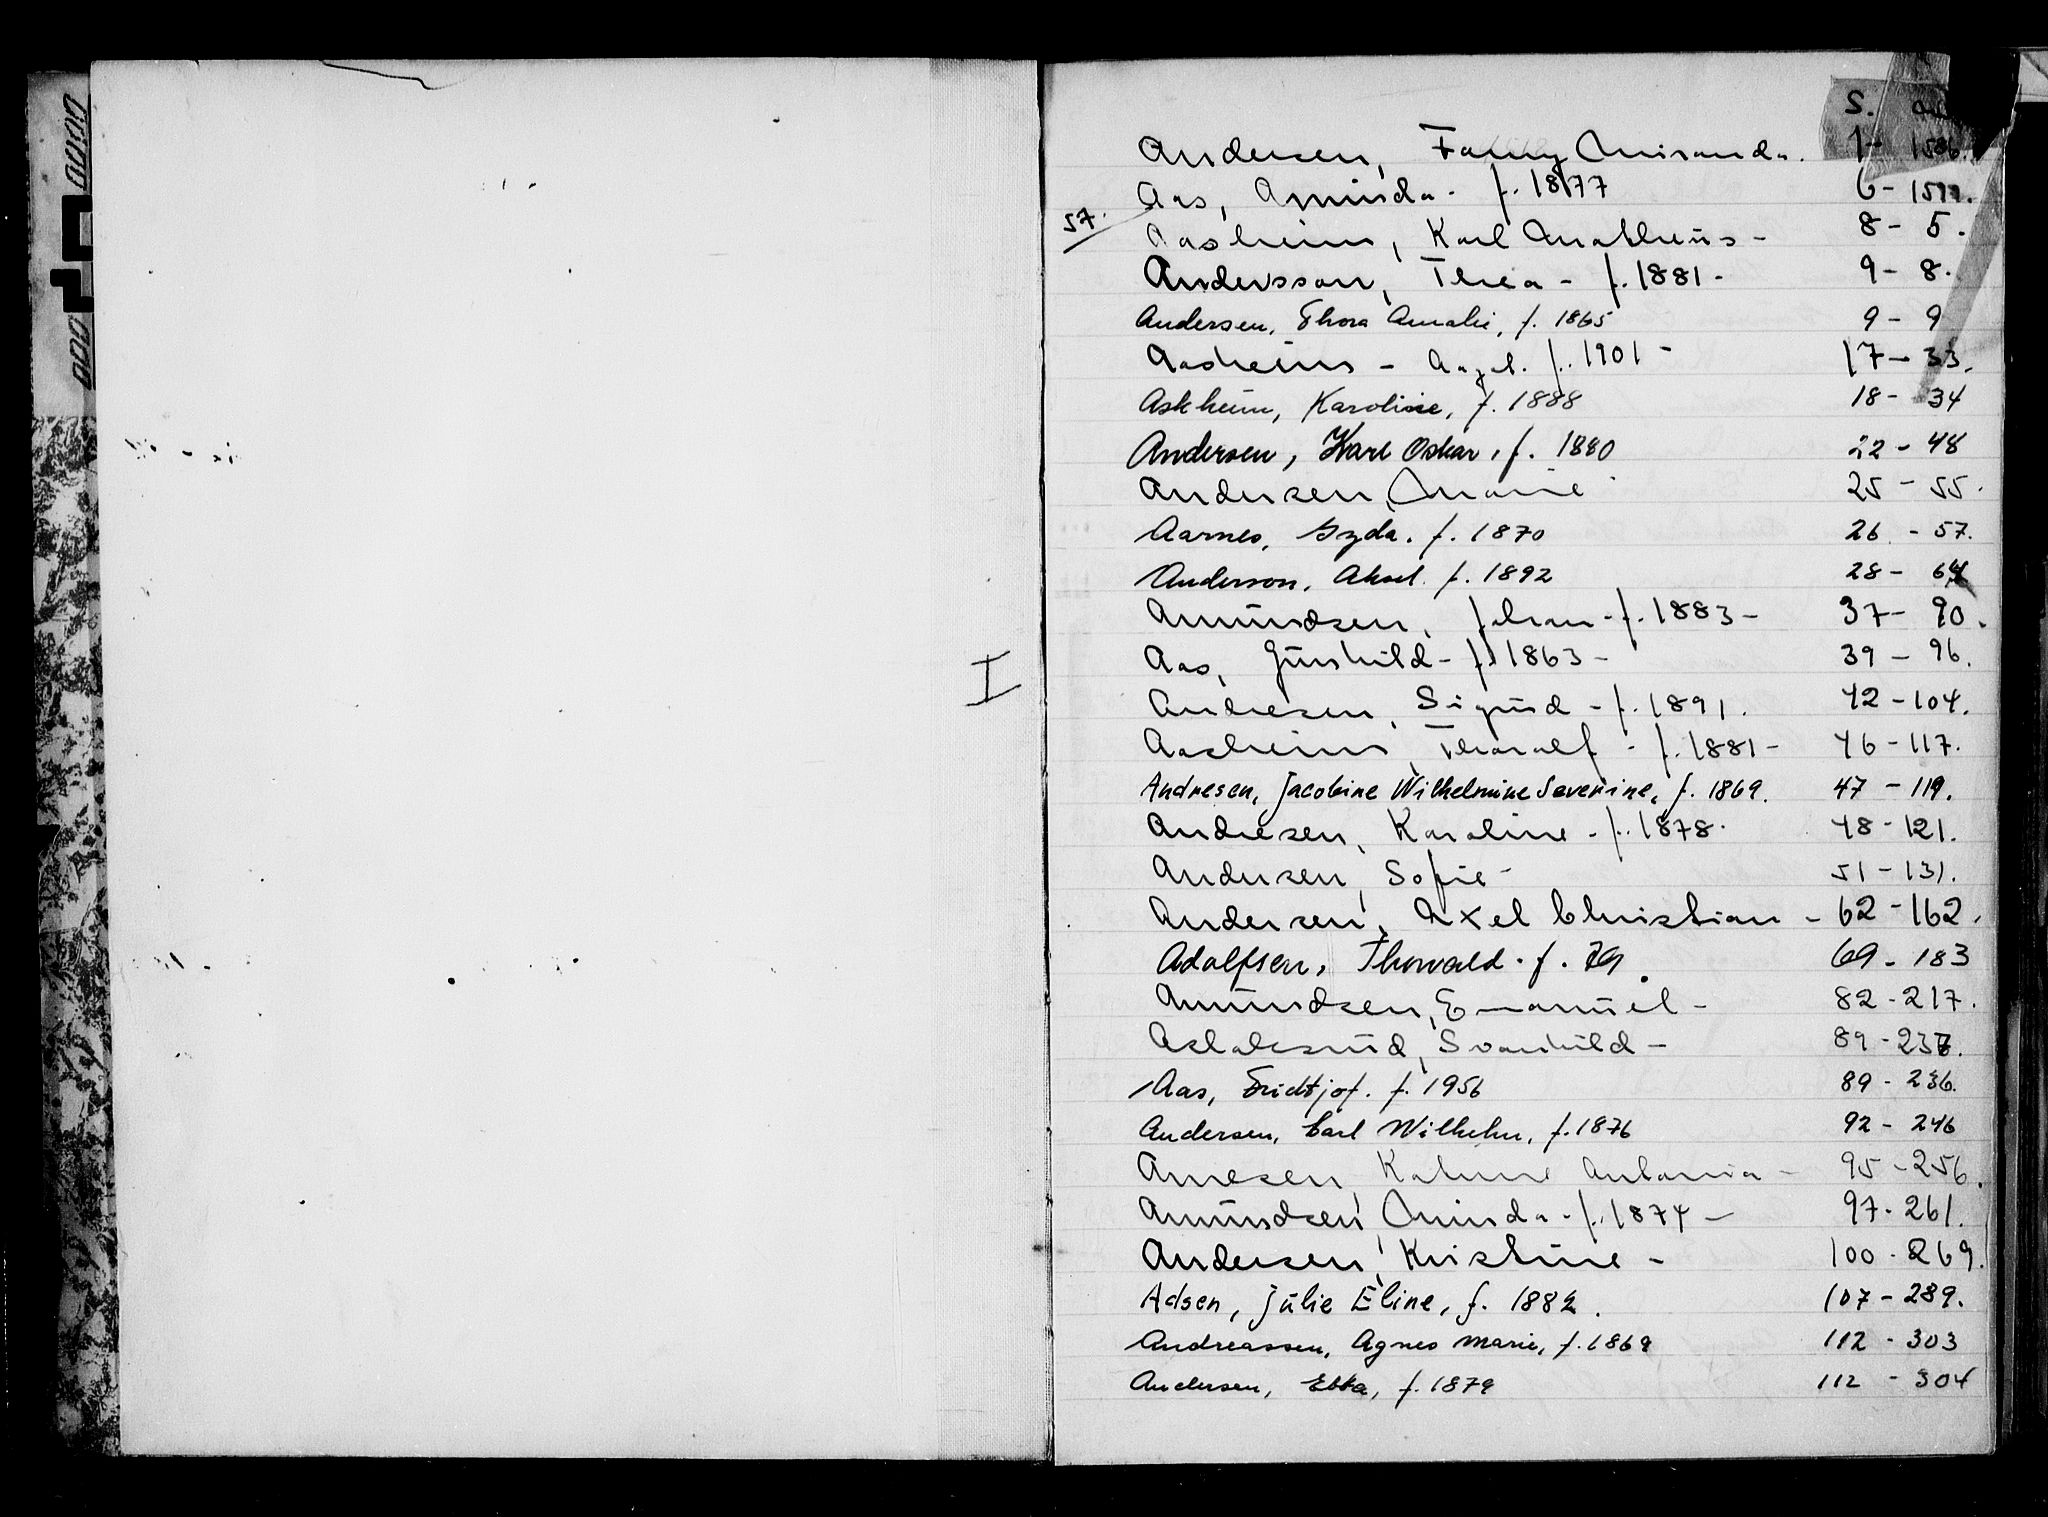 I
S.
Andersen, Fanny Miranda. 1- 1586.
Aas, Aminda - f. 1877 6 -
57. Aasheim, Karl Matheüs - 8 - 5.
Andersson, Thea - f. 1881 - 9 - 8.
Andersen, Thora Amalie, f. 1865 9 - 9
Aasheim - Aagot. f. 1901 - 17 - 33.
Askheim, Karoline, f. 1888 18 - 34
Andersen, Karl Oskar, f. 1880 22 - 48
Andersen, Marie 25 - 55.
Aarnes, Gyda. f. 1870 26 - 57.
Anderson, Aksel. f. 1892 28 - 64
Amündsen, Johan - f. 1883 - 37 - 90.
Aas, Günhild - f. 1863 - 39 - 96.
Andresen, Sigürd - f. 1891. 42 - 104.
Aasheim, Thoralf - f. 1881 - 46 - 117.
Andresen, Jacobine Wilhelmine Severine, f. 1869. 47 - 119.
Andresen, Karoline - f. 1878. 48 - 121.
Andersen, Sofie - 51 - 131.
Andersen, Axel Christian - 62 - 162.
Adolfsen, Thorvald. f. 79. 69 - 183
Amündsen, Emanüel - 82 - 217.
Aslaksrüd, Svanhild - 89 -
Aas, Fridtjof. f. 1956 89 - 236.
Andersen, Carl Wilhelm, f. 1876 92 - 246
Arnesen, Antonia - 95 - 256.
Amündsen, Minda - f. 1874 - 97 - 261.
Andersen, Kristine - 100 - 269.
Adsen, Jülie Eline, f. 1882. 107 - 289.
Andreassen, Agnes Marie, f. 1869 112 - 303
Andersen, Ebba, f. 1879 112 - 304